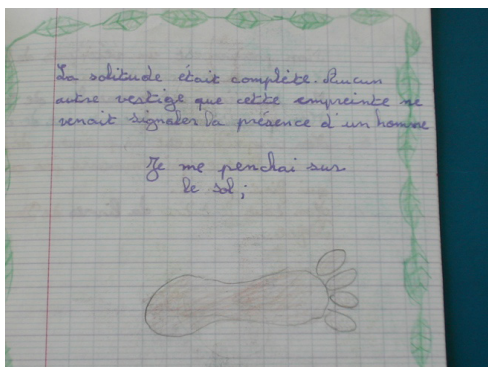 La solitude était complète. Aucun
autre vestige que cette empreinte ne
venait signaler la présence d'un homme
Je me penchai sur
le sol;